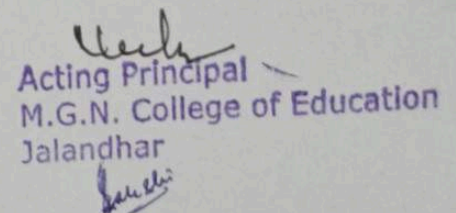 Acting Principal
M.G.N. College of Education
Jalandhar